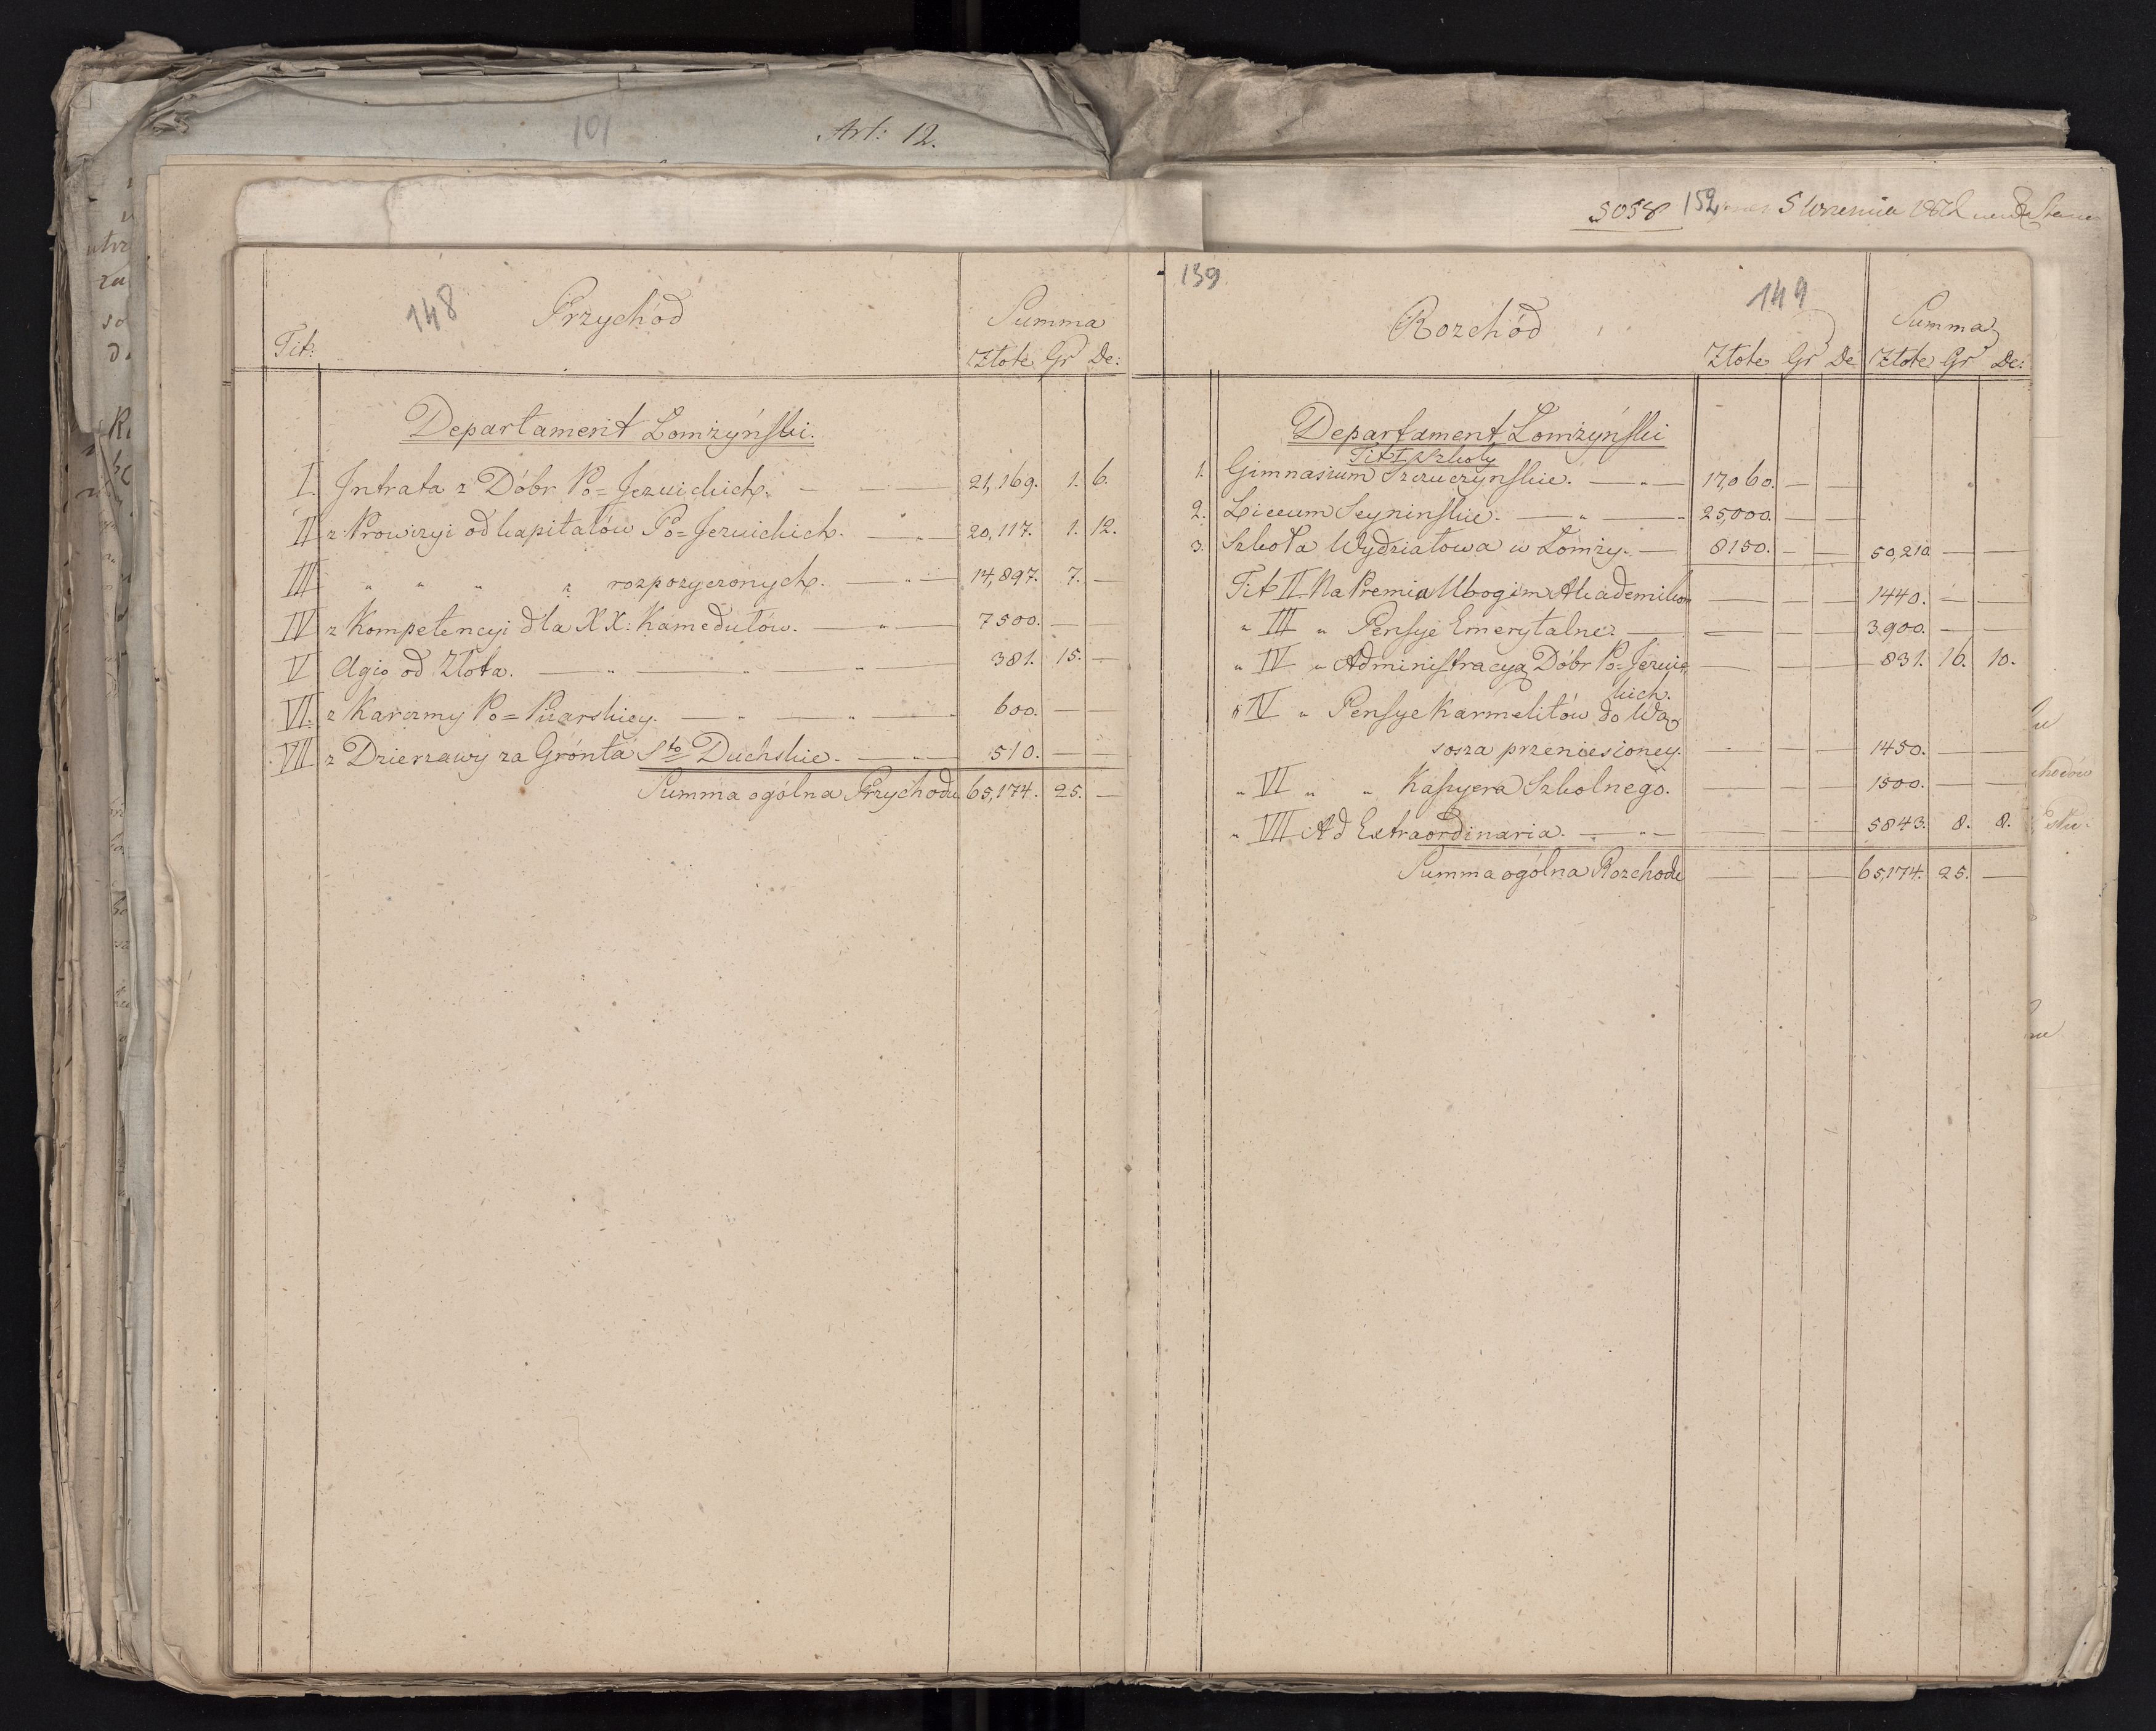 101
Art: 12.
5058
152
5 Wrzesnia
148
Przychód
Summa
Tit:
Złote Gr De:
Departament Łomżyński.
I. Jntrata z Dóbr Po=Jezuickich. 21,169. 1. 6.
II z Prowizyi od kapitałów Po=Jezuickich. 20,117. 1. 12.
III " " " " rozpożyczonych. 14,897. 7. —
IV z Kompetencyi dla XX: Kamedułów. 7500. — —
V Agio od Złota. 381. 15. —
VI. z Karczmy Po=Piiarskiey. 600. — —
VII z Dzierzawy za Grónta Sto Duchskie. 510. — —
Summa ogólna Przychodu 65,174. 25. —
139
149
Rozchód
Summa
Złote Gr De Złote Gr De:
Departament Łomżyński
Tit I Szkoły
1. Gimnasium Szczuczyńskie. 17,060. — —
2. Liceum Seyninskie. 25,000. — —
3. Szkoła Wydziałowa w Łomży. 8150. — — 50,210 — —
Tit II Na Premia Ubogim Akademikom — — — 1440. — —
" III " Pensye Emerytalne. — — — 3,900. — —
" IV " Administracyą Dóbr Po=Jezuic — — — 831. 16. 10.
kich.
" V " Pensye Karmelitów do Wą
sosza przeniesioney. — — — 1450. — —
" VI " " Kassyera Szkolnego. — — — 1500. — —
" VII Ad Extraordinaria. — — — 5843. 8. 8.
Summa ogólna Rozchodu — — — 65,174. 25. —